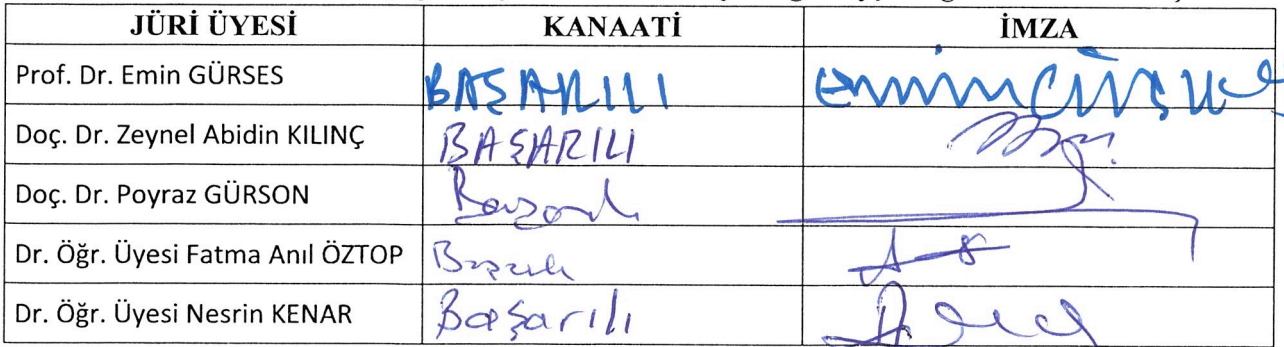 JÜRİ ÜYESİ KANAATİ İMZA
Prof. Dr. Emin GÜRSES BAŞARILI
Doç. Dr. Zeynel Abidin KILINÇ BAŞARILI
Doç. Dr. Poyraz GÜRSON Başarılı
Dr. Öğr. Üyesi Fatma Anıl ÖZTOP Başarılı
Dr. Öğr. Üyesi Nesrin KENAR Başarılı